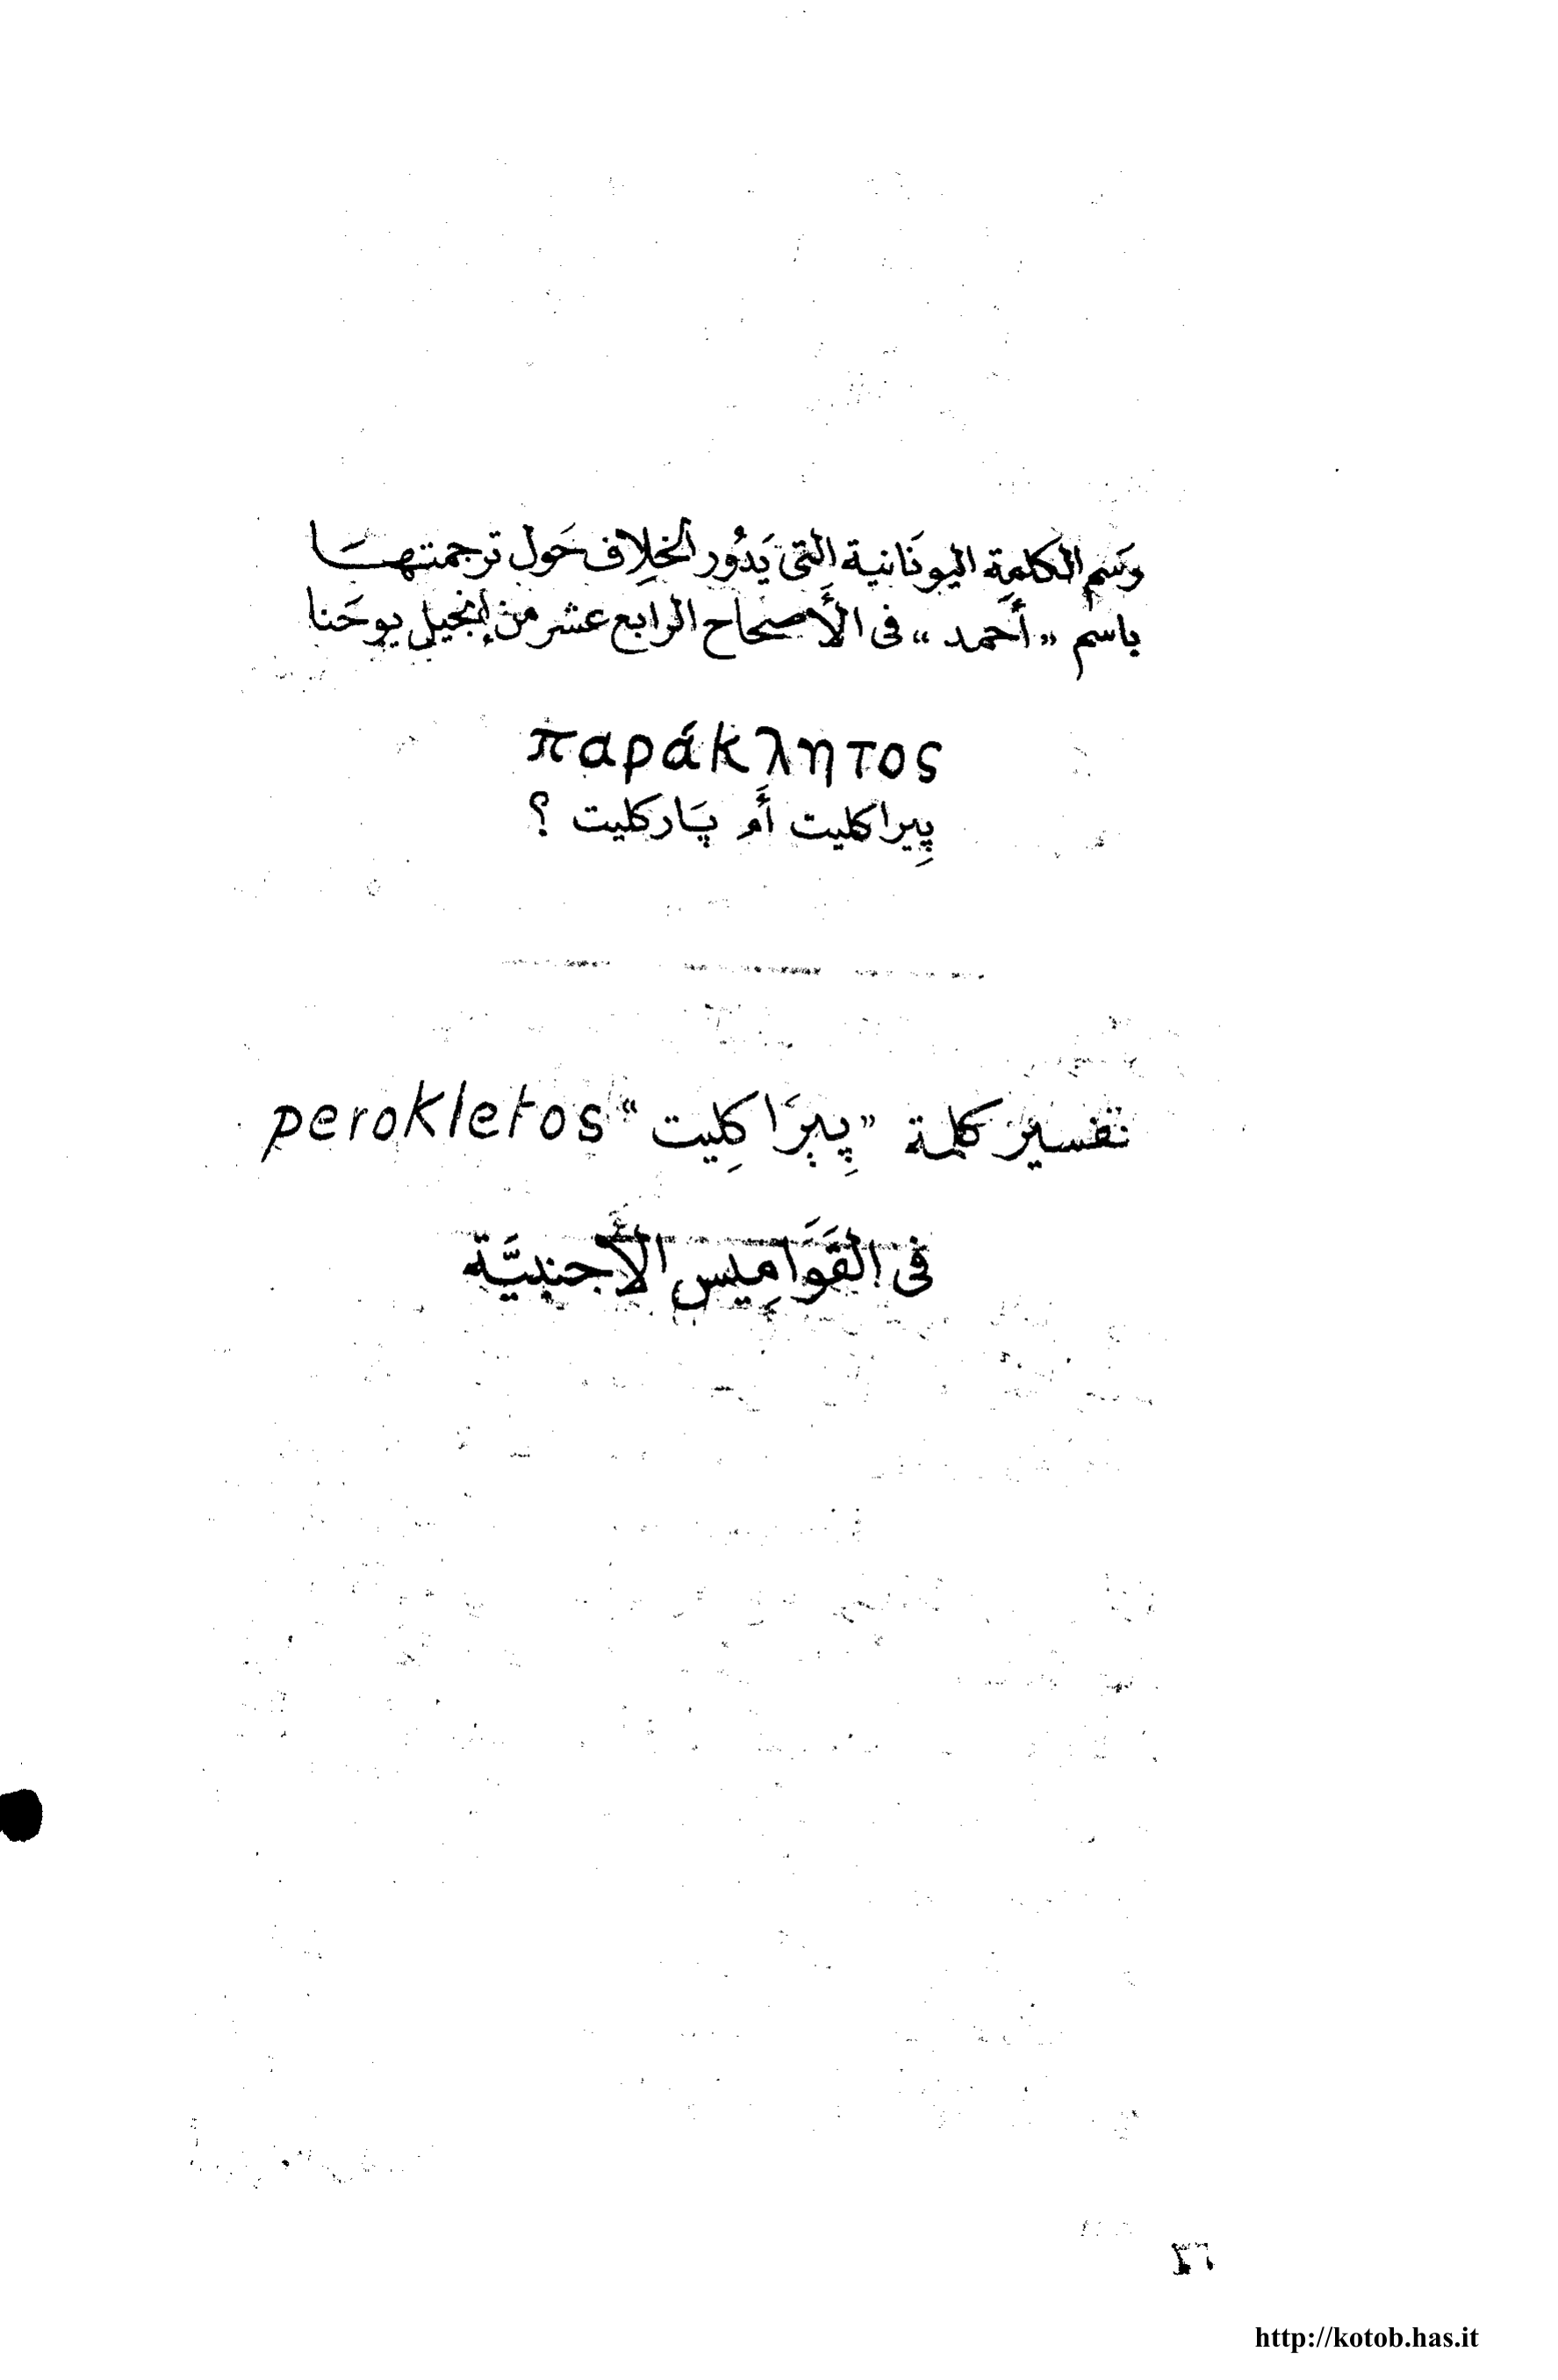 وَسم الكلمِة اليونَانية التى يَدُور الخلِاف حَول ترجمتهسَا
باسم « أَحمد » فى الأَصحاح الرابع عشر من إنجيل يوحَنا
παράκλητος
پِيراكليت أَم پَاركليت ؟
تفسير كلمة « پِيرَاكلِيت » perokletos
فى القَوَامِيس الأَجنبيَّة
٣٦
http://kotob.has.it